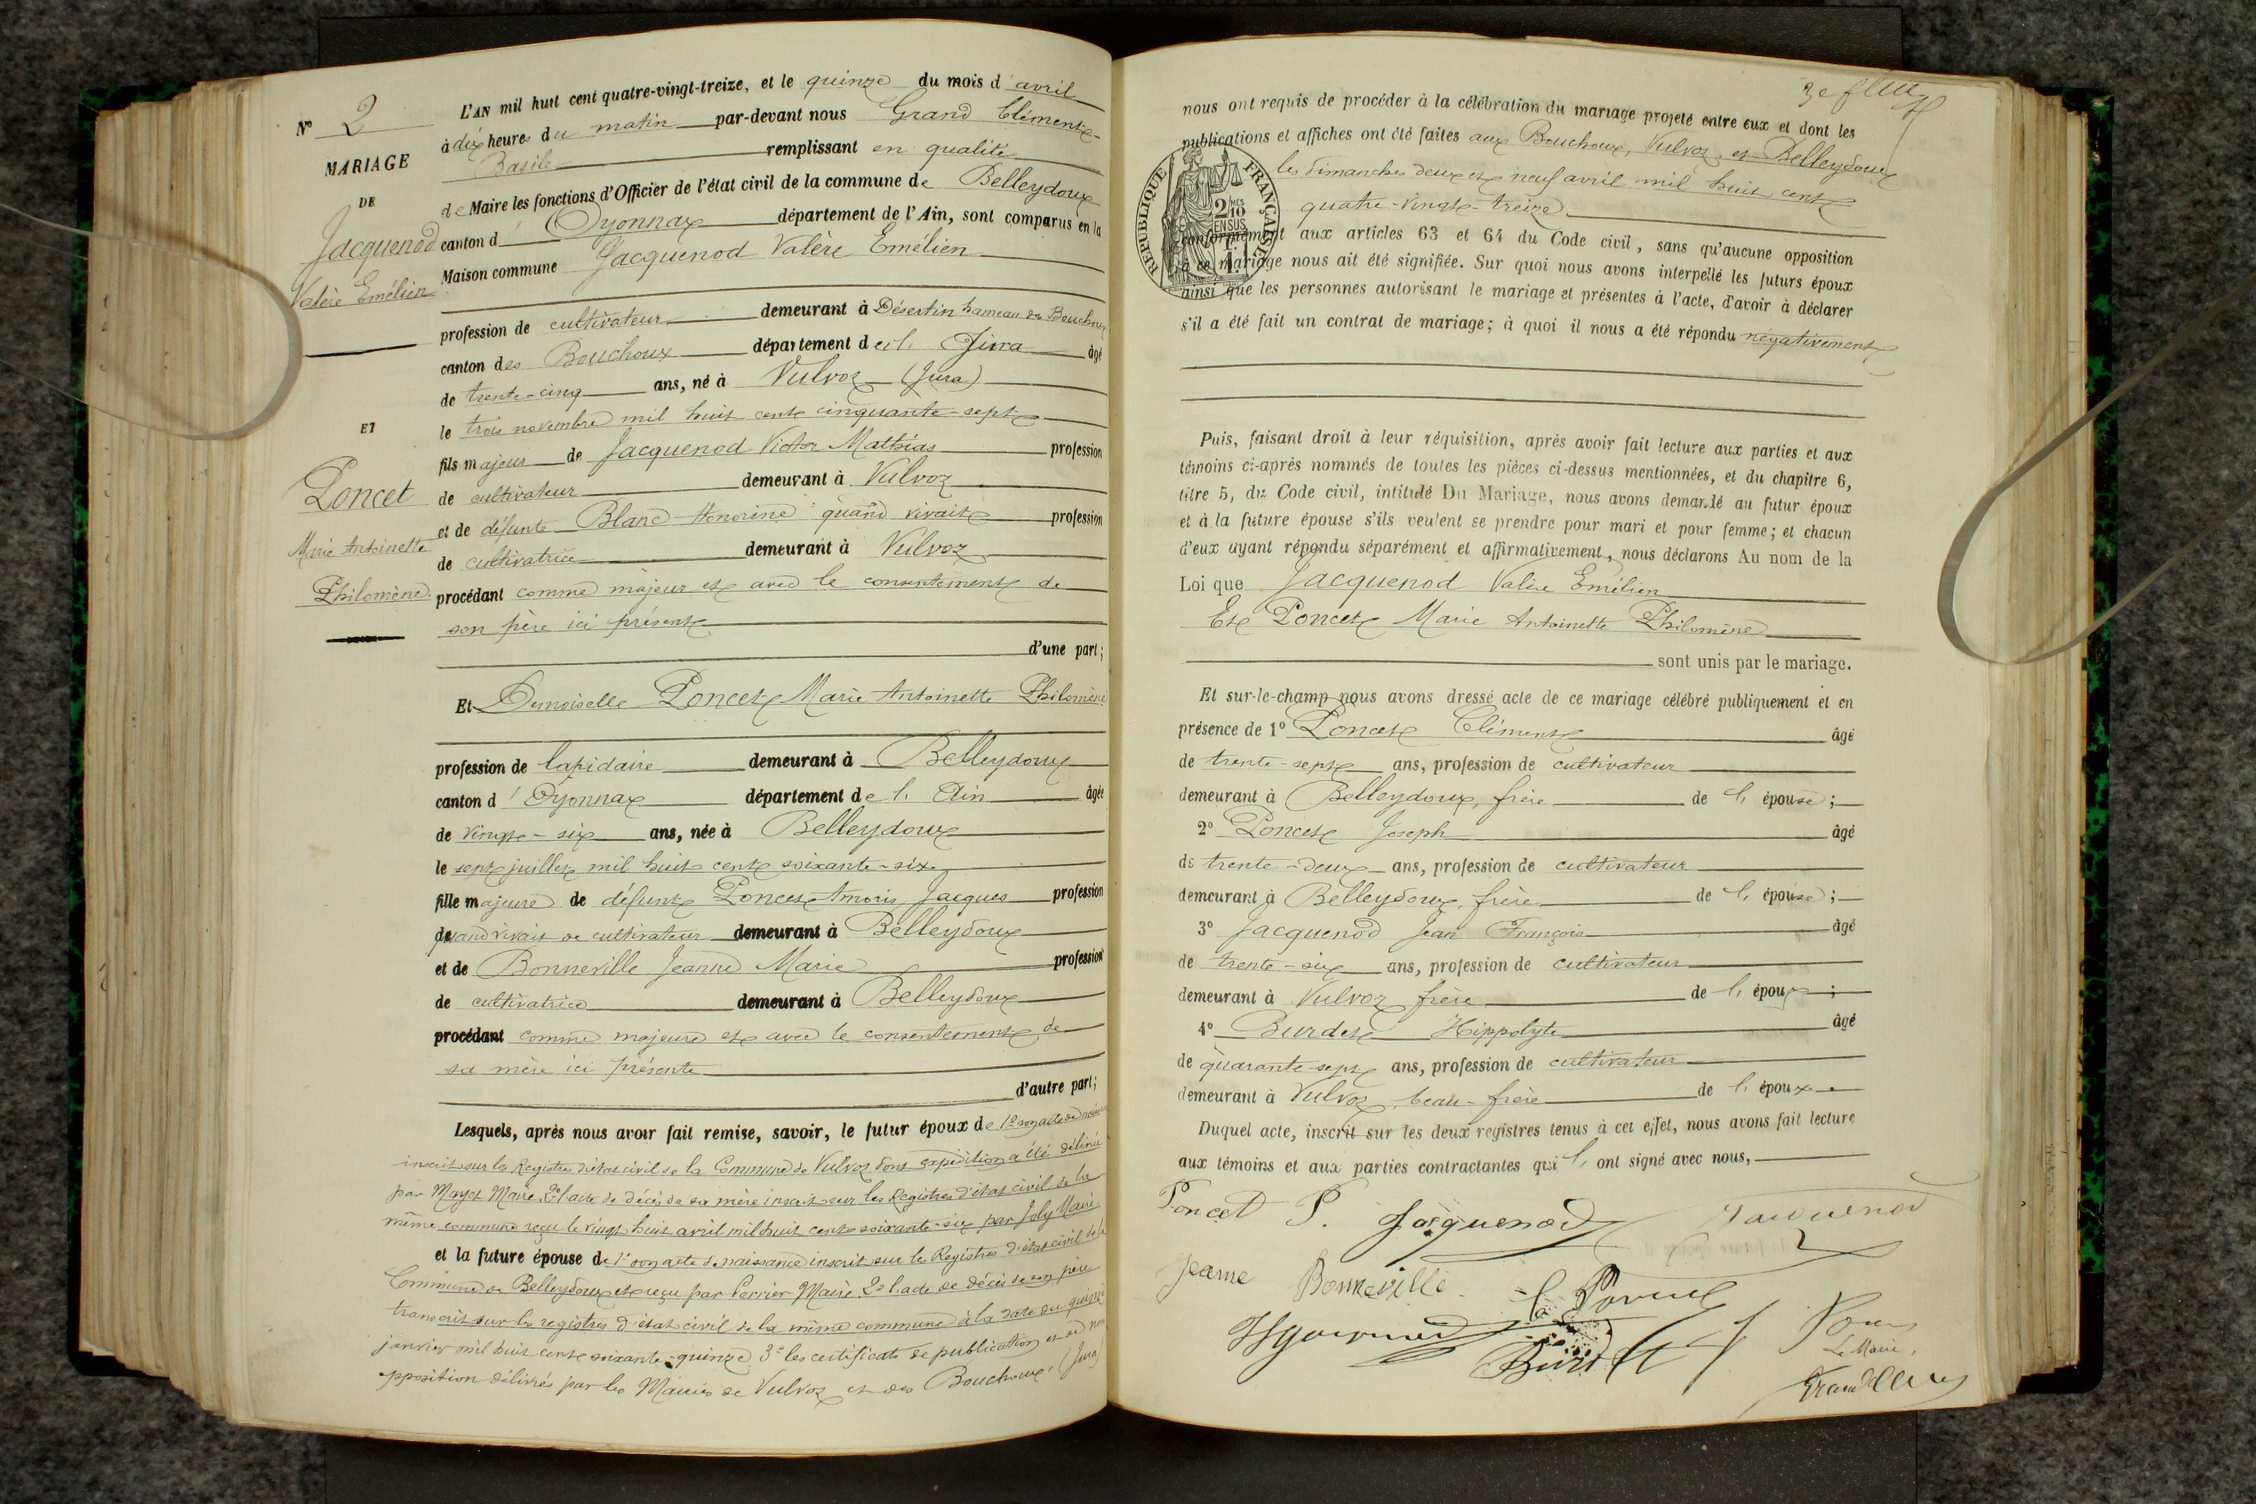 N° 2
MARIAGE
DE
Jacquenod
Valère Emélien
ET
Poncet
Marie Antoinette
Philomène
L'AN mil huit cent quatre-vingt-treize, et le quinze du mois d'avril
à dix heures du matin par-devant nous Grand Clément
Basile remplissant en qualité
de Maire les fonctions d'Officier de l'état civil de la commune de Belleydoux
canton d'Oyonnax département de l'Ain, sont comparus en la
Maison commune Jacquenod Valère Emélien
profession de cultivateur demeurant à Désertin hameau des Bouchoux
canton des Bouchoux département de l. Jura âgé
de trente-cinq ans, né à Vulvoz (Jura)
le trois novembre mil huit cent cinquante-sept
fils majeur de Jacquenod Victor Mathias profession
de cultivateur demeurant à Vulvoz
et de défunte Blanc Honorine quand vivait profession
de cultivatrice demeurant à Vulvoz
procédant comme majeur et avec le consentement de
son père ici présent
d'une part;
Et Demoiselle Poncet Marie Antoinette Philomène
profession de lapidaire demeurant à Belleydoux
canton d'Oyonnax département de l. Ain âgée
de vingt-six ans, née à Belleydoux
le sept juillet mil huit cent soixante-six
fille majeure de défunt Poncet Amoris Jacques profession
quand vivait de cultivateur demeurant à Belleydoux
et de Bonneville Jeanne Marie profession
de cultivatrice demeurant à Belleydoux
procédant comme majeure et avec le consentement de
sa mère ici présente
d'autre part;
Lesquels, après nous avoir fait remise, savoir, le futur époux de 1° son acte de
inscrit sur les Registres d'état civil de la Commune de Vulvoz dont expédition a été délivré
par Mayet Maire 2° l'acte de décès de sa mère inscrit sur les Registres d'état civil de la
même commune reçu le vingt huit avril mil huit cent soixante-six par Joly Maire
et la future épouse de 1° son acte de naissance inscrit sur les Registres d'état civil de la
Commune de Belleydoux et reçu par Perrier Maire 2° l'acte de décès de son père
transcrit sur les registres d'état civil de la même commune à la date du quinze
janvier mil huit cent soixante-quinze 3° les certificats de publication et de non
opposition délivrés par les Maires de Vulvoz et des Bouchoux (Jura)
nous ont requis de procéder à la célébration du mariage projeté entre eux et dont les
publications et affiches ont été faites aux Bouchoux, Vulvoz et Belleydoux
les dimanches deux et neuf avril mil huit cent
quatre-vingt-treize
conformément aux articles 63 et 64 du Code civil, sans qu'aucune opposition
à ce mariage nous ait été signifiée. Sur quoi nous avons interpellé les futurs époux
ainsi que les personnes autorisant le mariage et présentes à l'acte, d'avoir à déclarer
s'il a été fait un contrat de mariage; à quoi il nous a été répondu négativement
RÉPUBLIQUE FRANÇAISE
2/10
EN SUS
Puis, faisant droit à leur réquisition, après avoir fait lecture aux parties et aux
témoins ci-après nommés de toutes les pièces ci-dessus mentionnées, et du chapitre 6,
titre 5, du Code civil, intitulé Du Mariage, nous avons demandé au futur époux
et à la future épouse s'ils veulent se prendre pour mari et pour femme; et chacun
d'eux ayant répondu séparément et affirmativement, nous déclarons Au nom de la
Loi que Jacquenod Valère Emélien
Et Poncet Marie Antoinette Philomène
sont unis par le mariage.
Et sur-le-champ nous avons dressé acte de ce mariage célébré publiquement et en
présence de 1° Poncet Clément âgé
de trente-sept ans, profession de cultivateur
demeurant à Belleydoux, frère de l. épouse;
2° Poncet Joseph âgé
de trente-deux ans, profession de cultivateur
demeurant à Belleydoux, frère de l. épouse;
3° Jacquenod Jean François âgé
de trente-six ans, profession de cultivateur
demeurant à Vulvoz frère de l. époux;
4° Burdet Hippolyte âgé
de quarante-sept ans, profession de cultivateur
demeurant à Vulvoz, beau-frère de l. époux.
Duquel acte, inscrit sur les deux registres tenus à cet effet, nous avons fait lecture
aux témoins et aux parties contractantes qui l. ont signé avec nous,
Poncet P. Jacquenod Jacquenod
Jeanne Bonneville
Burdet
Le Maire,
Grand